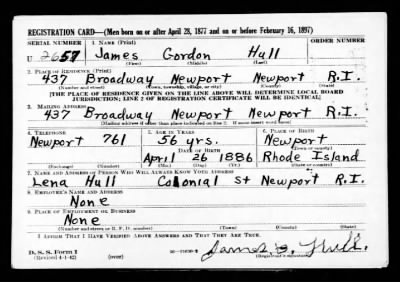 REGISTRATION CARD—(Men born on or after April 28, 1877 and on or before February 16, 1897)
SERIAL NUMBER 1. NAME (Print) ORDER NUMBER
U 2657 James Gordon Hull
(First) (Middle) (Last)
2. PLACE OF RESIDENCE (Print)
437 Broadway Newport Newport R.I.
(Number and street) (Town, township, village, or city) (County) (State)
[THE PLACE OF RESIDENCE GIVEN ON THE LINE ABOVE WILL DETERMINE LOCAL BOARD
JURISDICTION; LINE 2 OF REGISTRATION CERTIFICATE WILL BE IDENTICAL]
3. MAILING ADDRESS
437 Broadway Newport Newport R.I.
[Mailing address if other than place indicated on line 2. If same insert word same]
4. TELEPHONE 5. AGE IN YEARS 6. PLACE OF BIRTH
Newport 761 56 yrs. Newport
DATE OF BIRTH (Town or county)
April 26 1886 Rhode Island
(Exchange) (Number) (Mo.) (Day) (Yr.) (State or country)
7. NAME AND ADDRESS OF PERSON WHO WILL ALWAYS KNOW YOUR ADDRESS
Lena Hull Colonial st Newport R.I.
8. EMPLOYER'S NAME AND ADDRESS
None
9. PLACE OF EMPLOYMENT OR BUSINESS
None
(Number and street or R. F. D. number) (Town) (County) (State)
I AFFIRM THAT I HAVE VERIFIED ABOVE ANSWERS AND THAT THEY ARE TRUE.
D. S. S. Form 1
(Revised 4-1-42) (over) James G. Hull
(Registrant's signature)